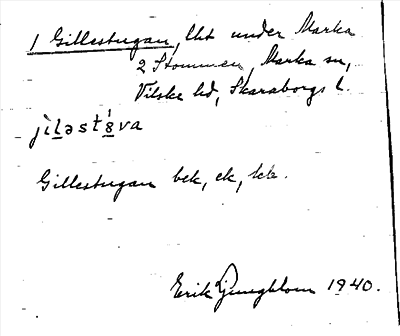 1 Gillestugan, lht under Marka
2 Stommen, Marka sn,
Vilske hd, Skaraborgs l.
jìləst8va
Gillestugan bek, ek, kk.
Erik Ljungblom 1940.